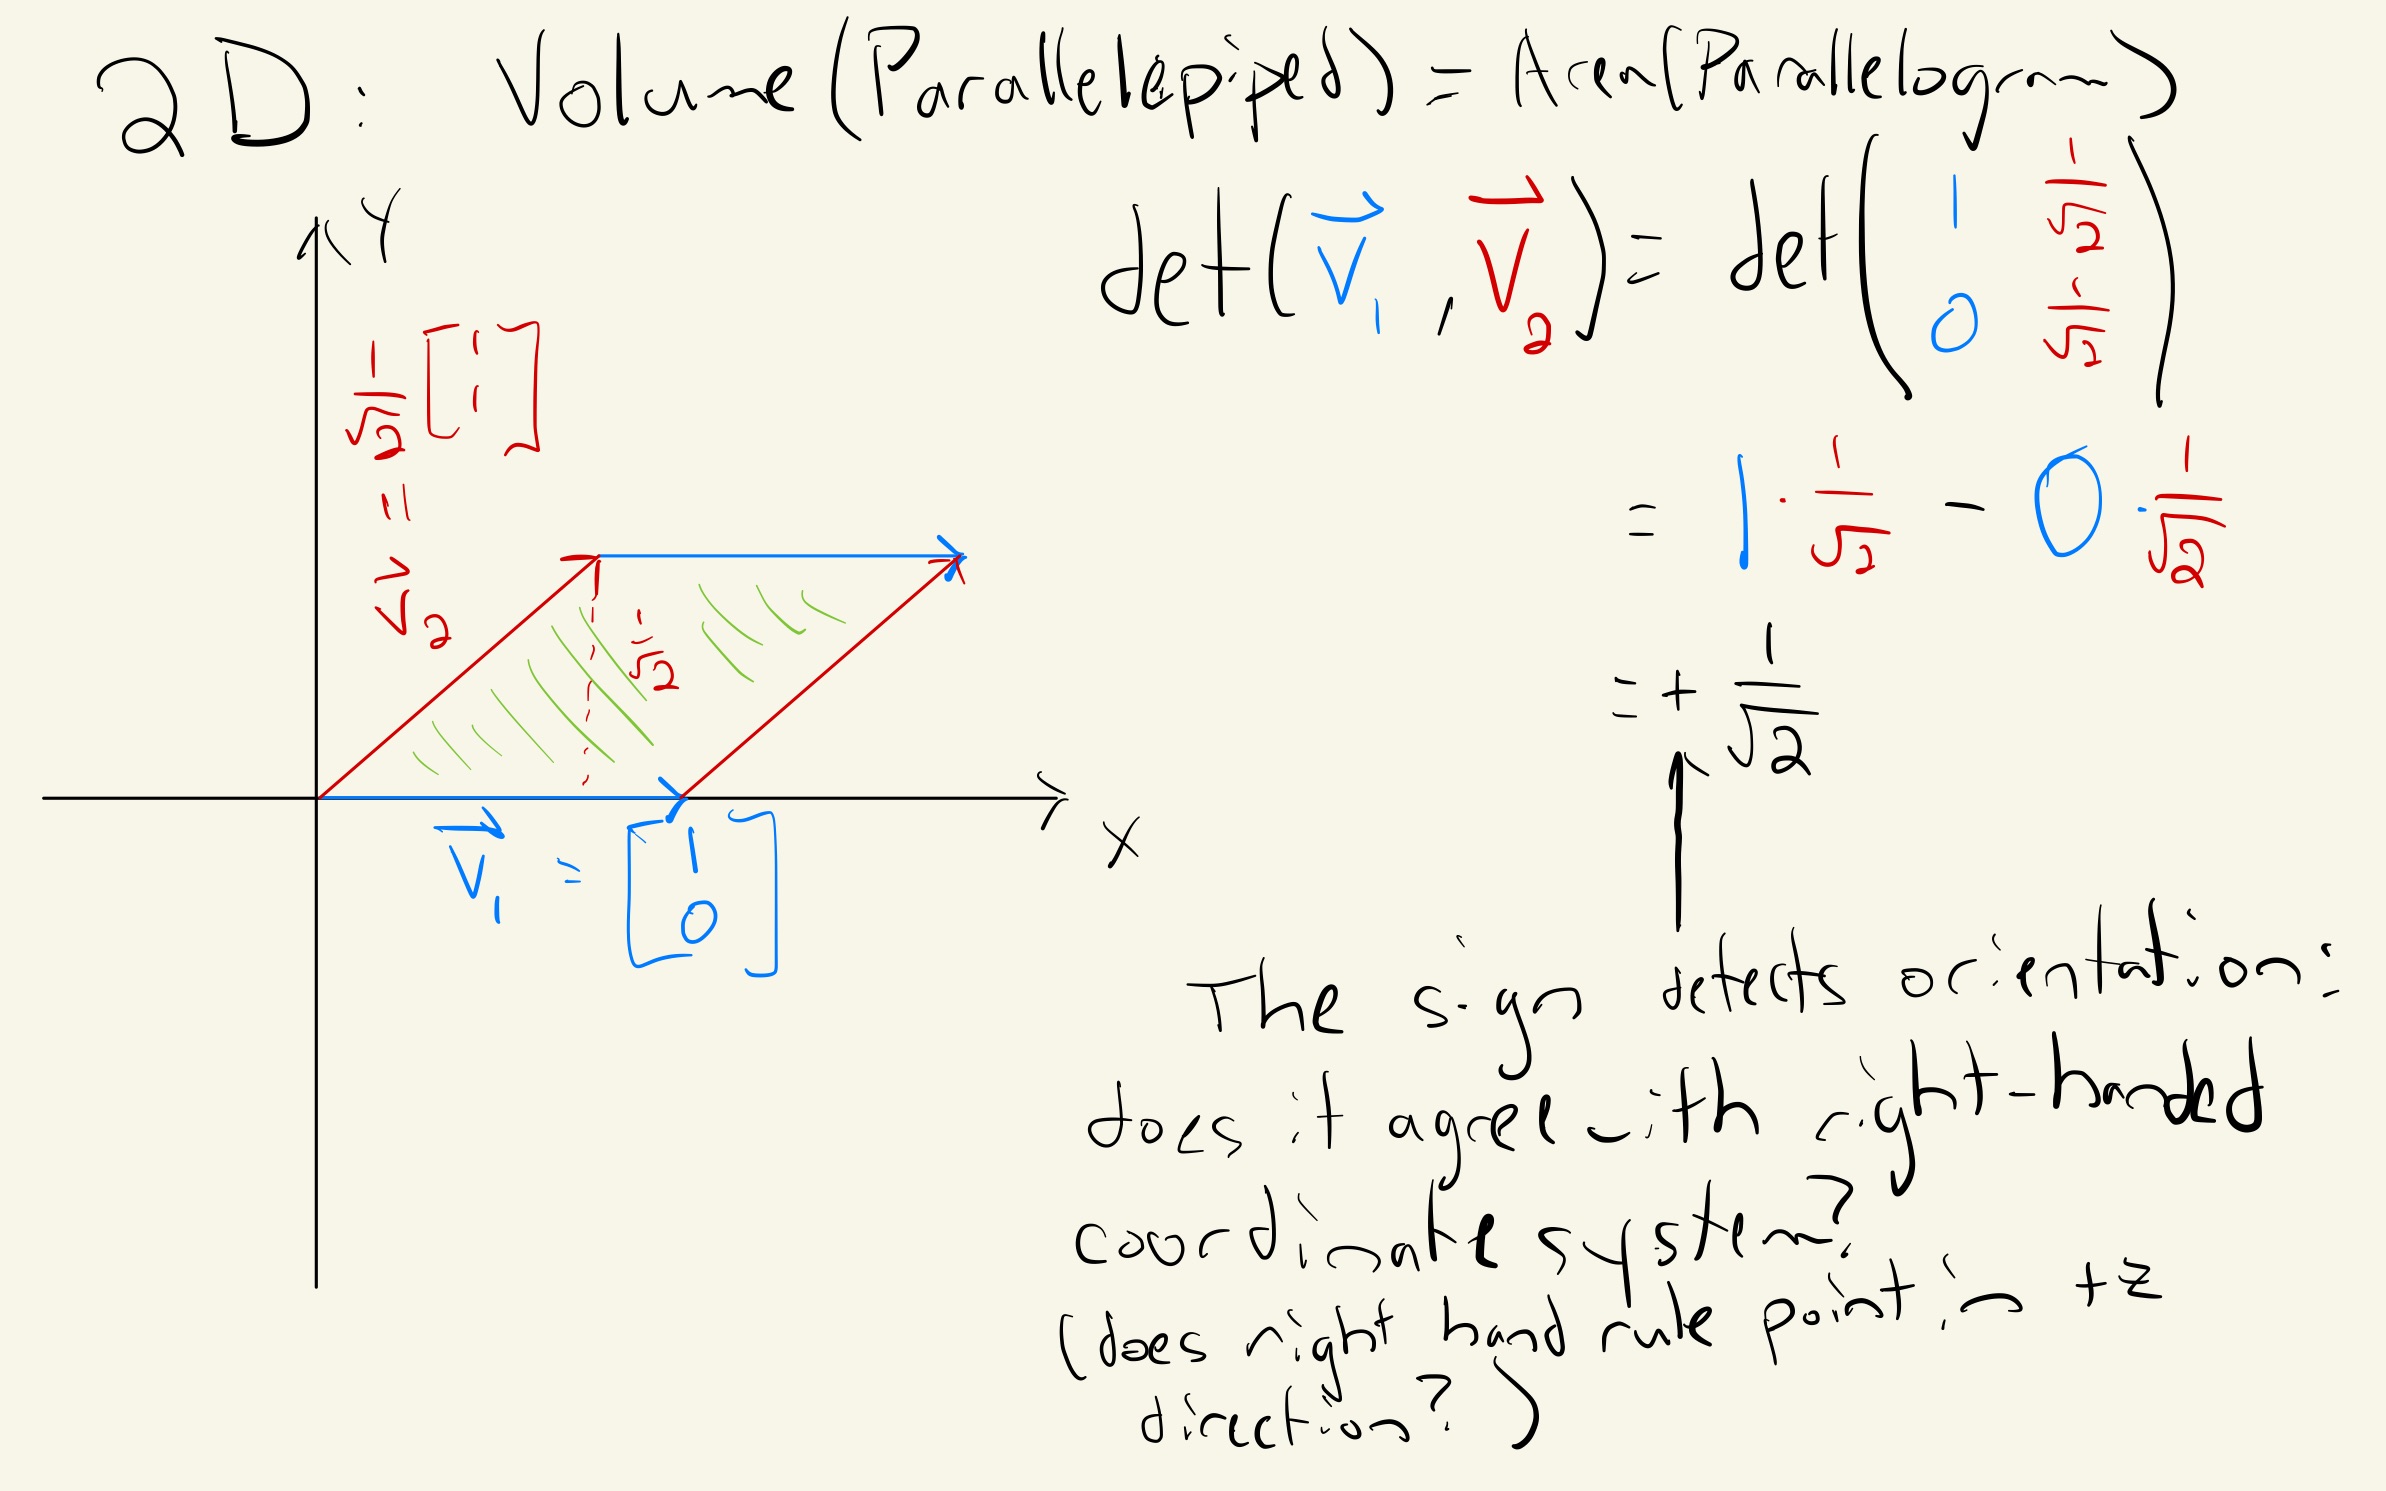 2D: Volume(Parallelepiped) = Area(Parallelogram)
Y
det(v⃗₁, v⃗₂) = det( 1 1/√2
0 1/√2 )
v⃗₂ = 1/√2 [1
1]
= 1 · 1/√2 − 0 · 1/√2
1/√2
= + 1/√2
X
v⃗₁ = [1
0]
The sign detects orientation:
does it agree with right-handed
coordinate system?
(does right hand rule point in +z
direction?)